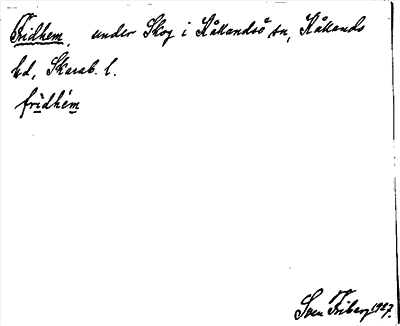 Fridhem, under Skog i Kållandsö sn, Kållands
hd, Skarab. l.
fridhém
Sven Friberg 1927.